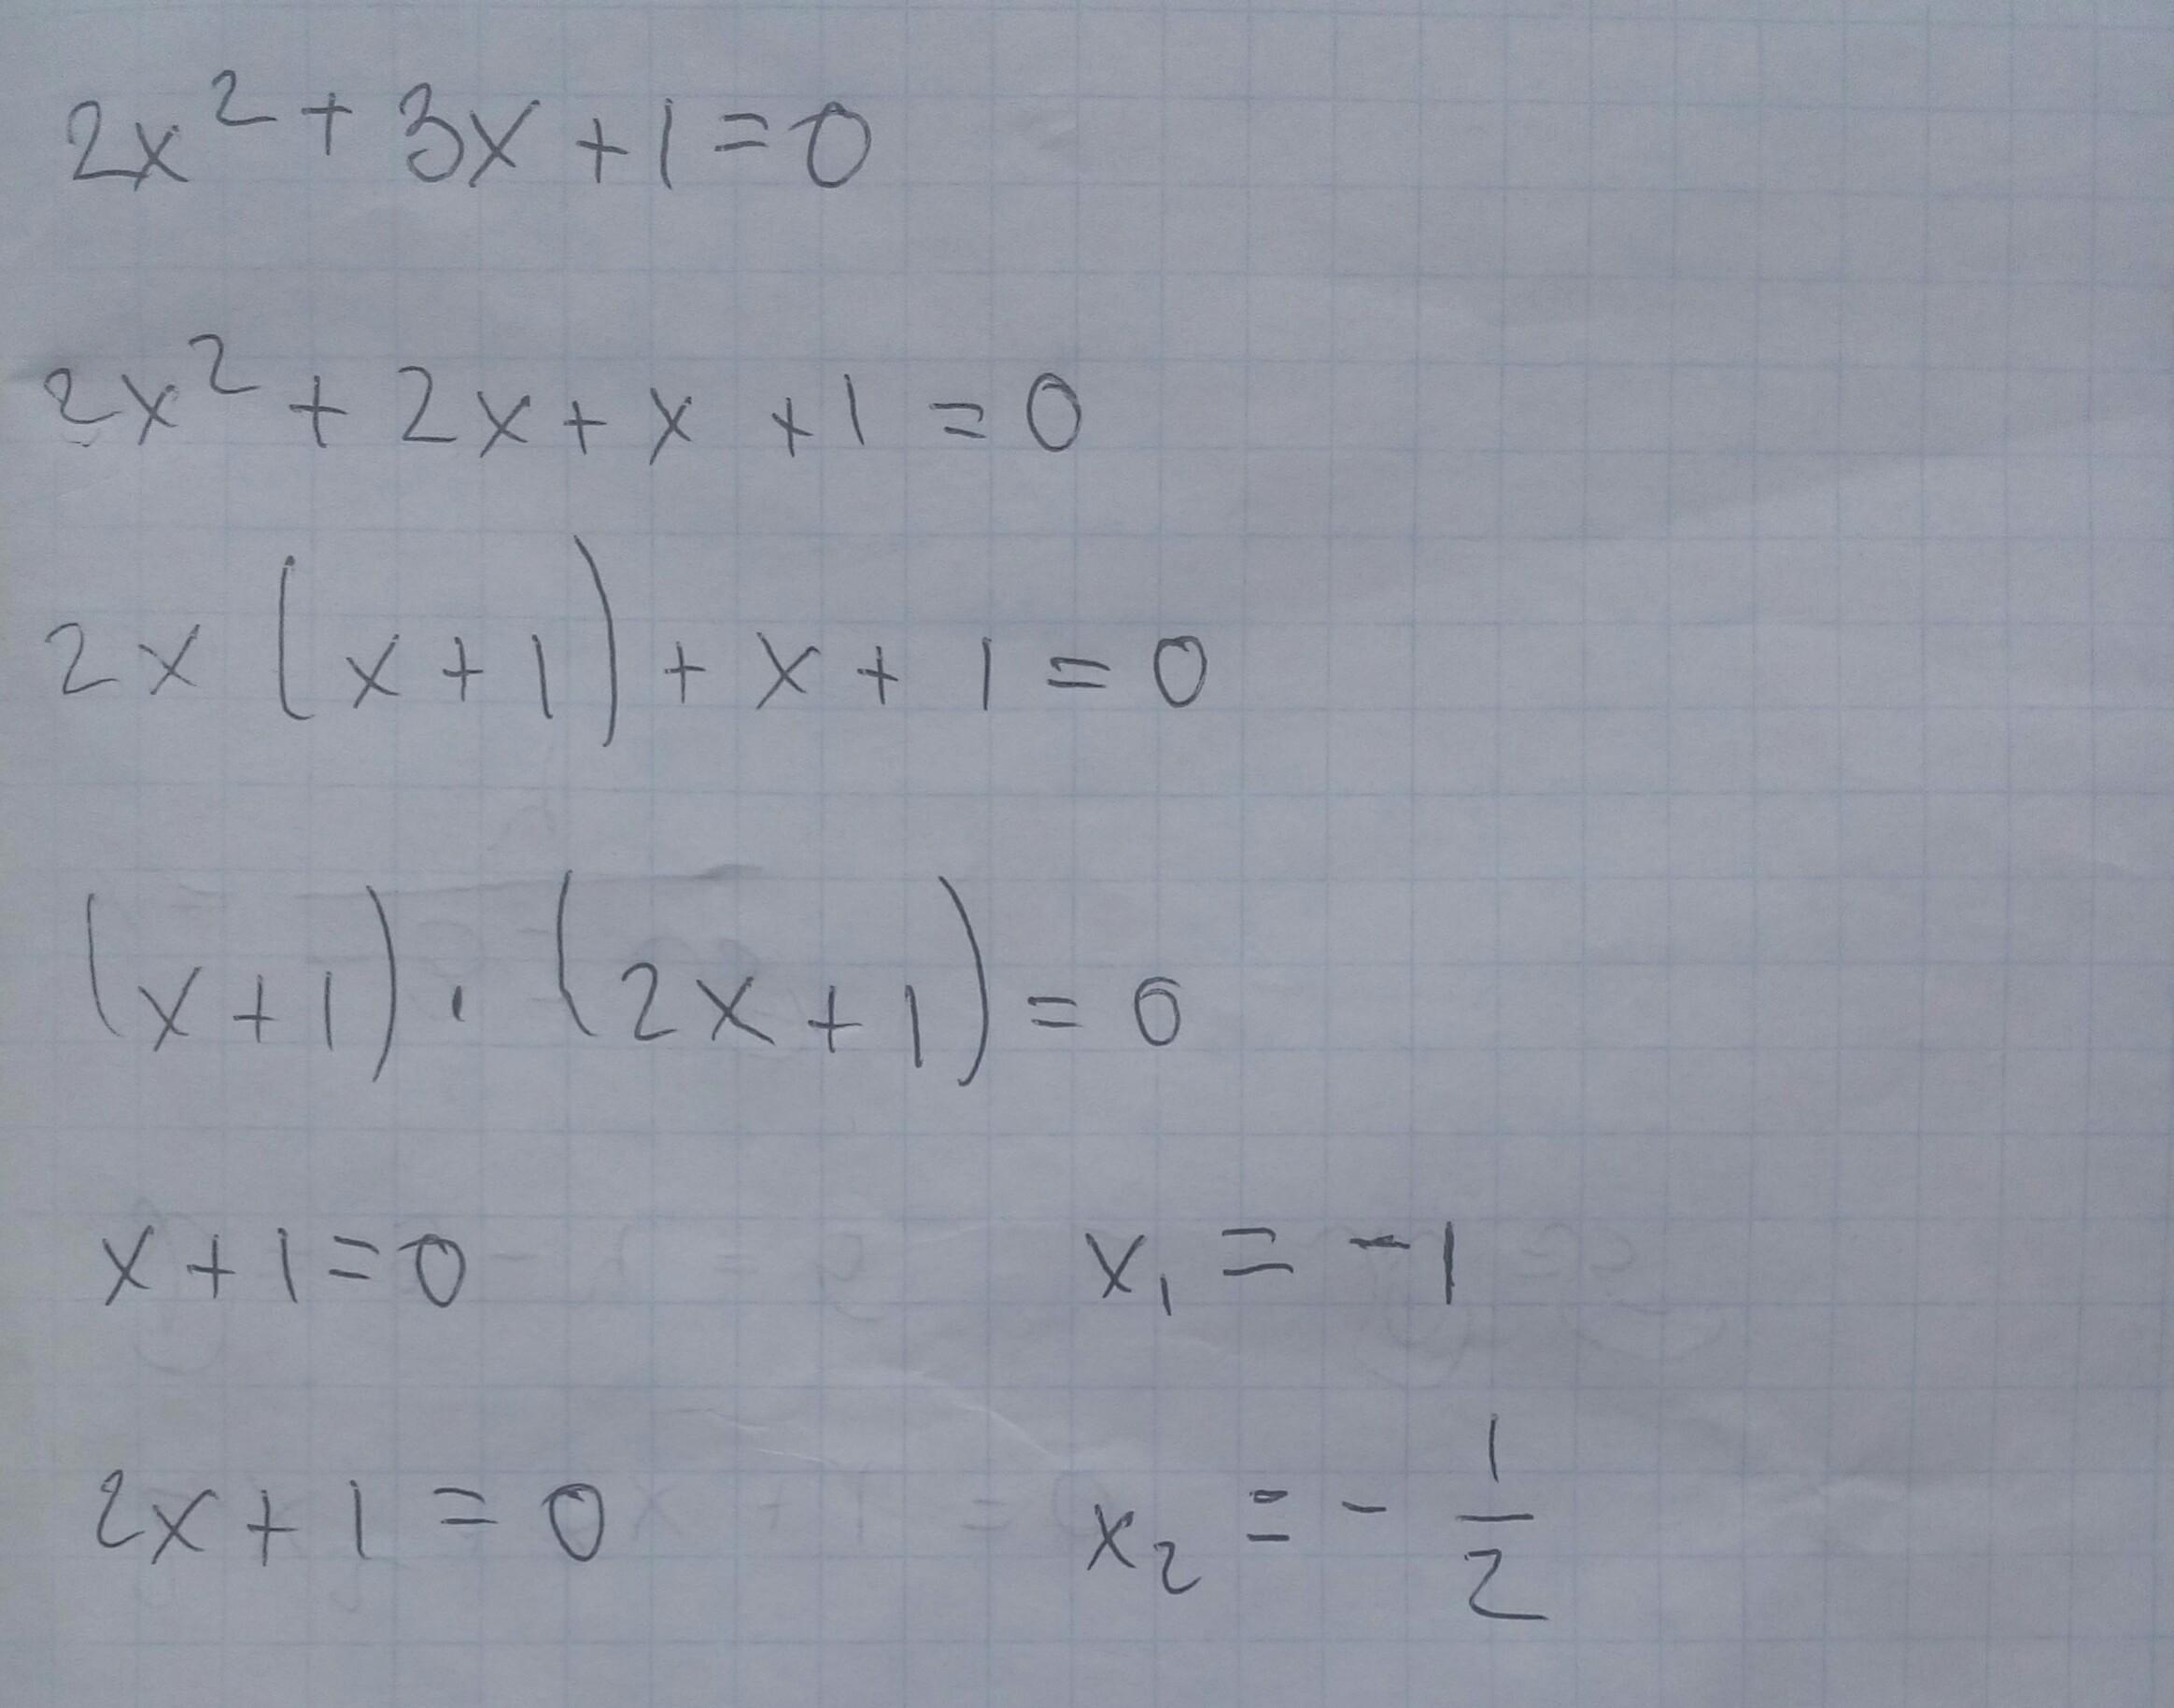 2x² + 3x + 1 = 0
2x² + 2x + x + 1 = 0
2x (x + 1) + x + 1 = 0
(x + 1) · (2x + 1) = 0
x + 1 = 0 x₁ = -1
2x + 1 = 0 x₂ = - 1/2